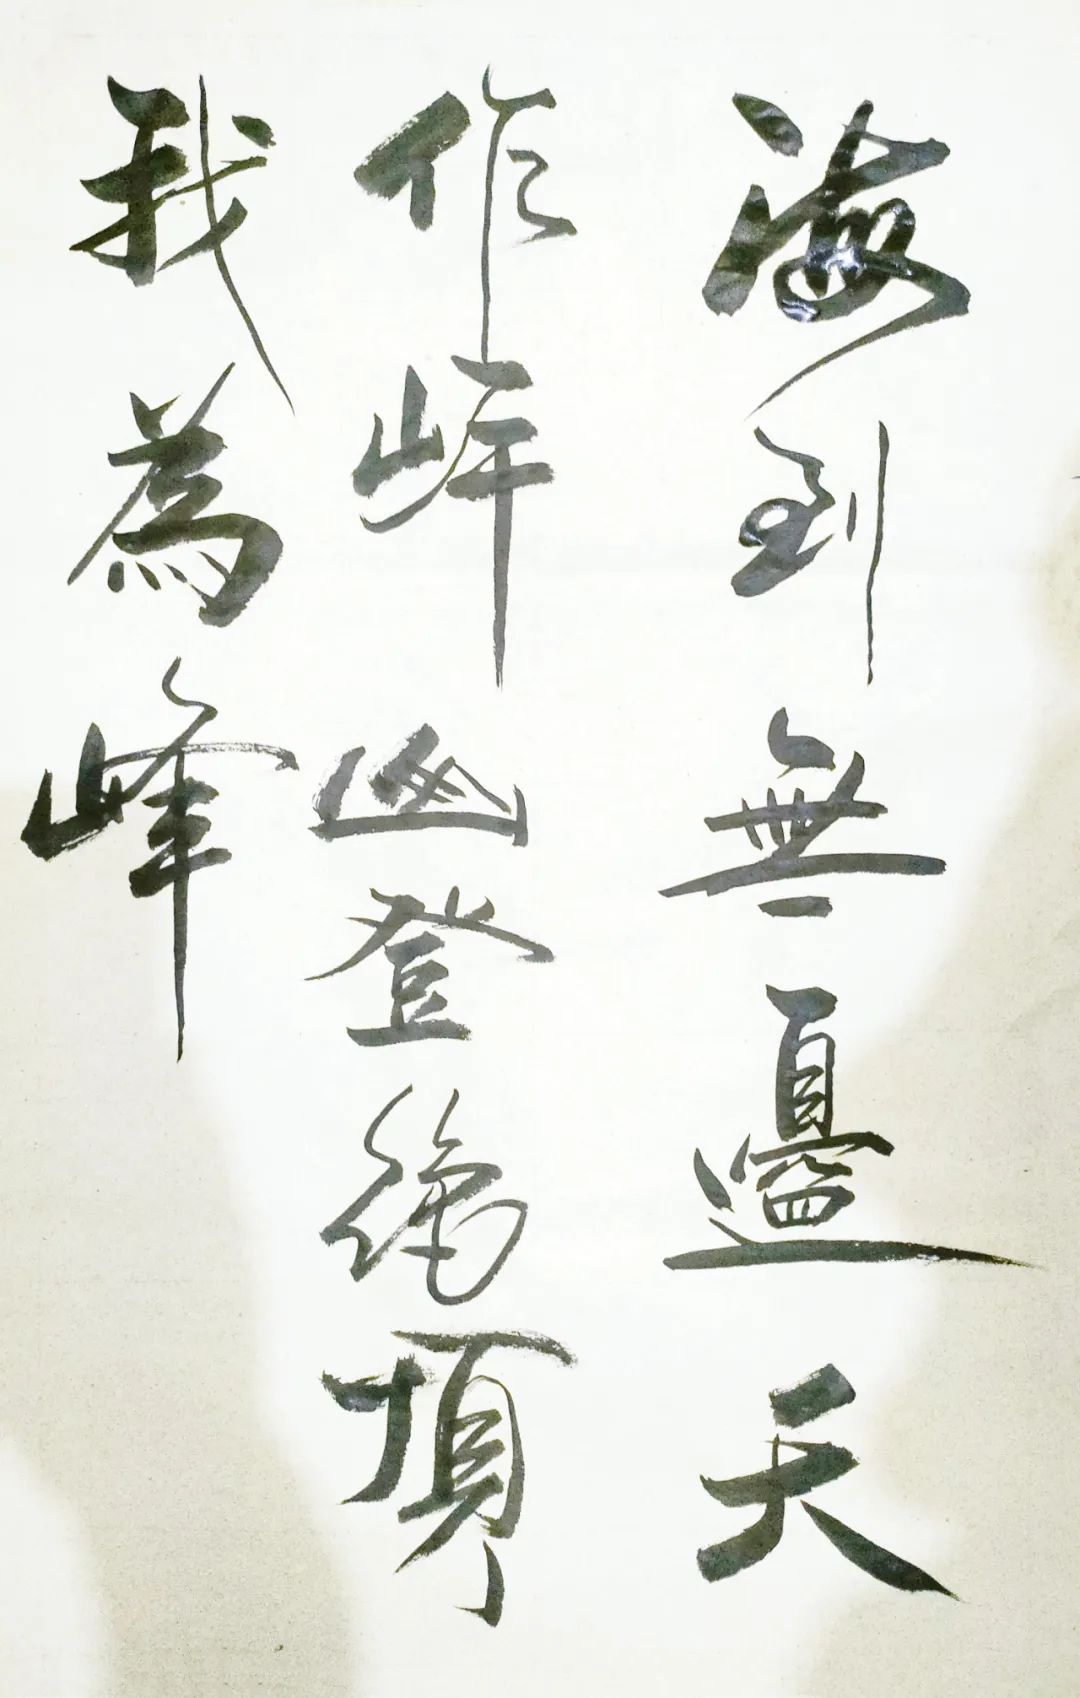 海到無邊天
作岸山登絶頂
我為峰